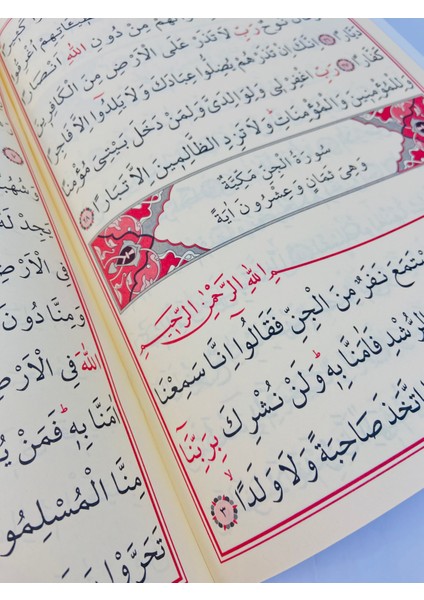 مِنْ دُونِ اللّٰهِ اَنْصَارًا
نُوحٌ رَبِّ لَا تَذَرْ عَلَى الْاَرْضِ مِنَ الْكَافِرٖينَ
دَيَّارًا ﴿٢٦﴾ اِنَّكَ اِنْ تَذَرْهُمْ يُضِلُّوا عِبَادَكَ وَلَا يَلِدُوا اِلَّا فَاجِرًا
كَفَّارًا ﴿٢٧﴾ رَبِّ اغْفِرْلٖى وَلِوَالِدَىَّ وَلِمَنْ دَخَلَ بَيْتِىَ مُؤْمِنًا
وَلِلْمُؤْمِنٖينَ وَالْمُؤْمِنَاتِ وَلَا تَزِدِ الظَّالِمٖينَ اِلَّا تَبَارًا ﴿٢٨﴾
سُورَةُ الْجِنِّ مَكِّيَّةٌ
وَهِىَ ثَمَانٍ وَعِشْرُونَ اٰيَةً
اللّٰهِ الرَّحْمٰنِ الرَّحٖيمِ
سْتَمَعَ نَفَرٌ مِنَ الْجِنِّ فَقَالُوا اِنَّا سَمِعْنَا
الرُّشْدِ فَاٰمَنَّا بِهٖ وَلَنْ نُشْرِكَ بِرَبِّنَا
اتَّخَذَ صَاحِبَةً وَلَا وَلَدًا ﴿٣﴾
وَشُهُبًا
يَجِدْ لَهُ
فِى الْاَرْضِ
وَمِنَّا دُونَ
اللّٰهَ فِى الْاَرْضِ
اٰمَنَّا بِهٖ فَمَنْ يُؤْ
مِنَّا الْمُسْلِمُو
تَحَرَّوْا